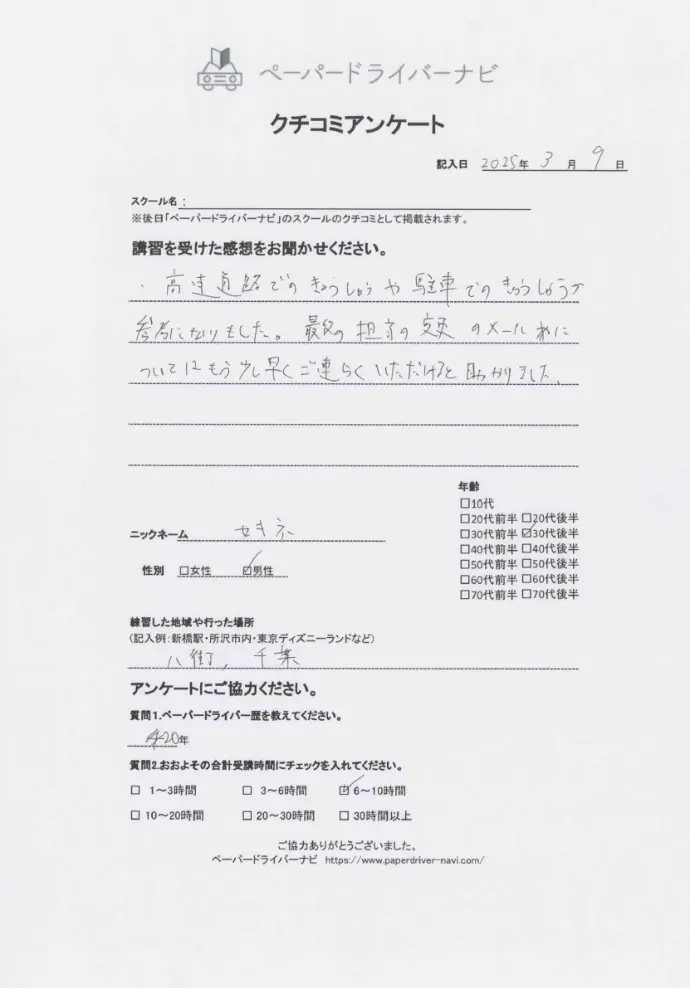 ペーパードライバーナビ
クチコミアンケート
記入日 2025年 3 月 9 日
スクール名：
※後日「ペーパードライバーナビ」のスクールのクチコミとして掲載されます。
講習を受けた感想をお聞かせください。
・高速道路でのきょうしゅうや駐車でのきょうしゅうが
参考になりました。最後の担当の変更のメール
についてはもう少し早くご連らくいただけると助かりました。
年齢
□10代
□20代前半 □20代後半
□30代前半 ☑30代後半
□40代前半 □40代後半
□50代前半 □50代後半
□60代前半 □60代後半
□70代前半 □70代後半
ニックネーム セキネ
性別 □女性 ☑男性
練習した地域や行った場所
（記入例：新橋駅・所沢市内・東京ディズニーランドなど）
八街，千葉
アンケートにご協力ください。
質問1.ペーパードライバー歴を教えてください。
20年
質問2.おおよその合計受講時間にチェックを入れてください。
□ 1～3時間 □ 3～6時間 ☑ 6～10時間
□ 10～20時間 □ 20～30時間 □ 30時間以上
ご協力ありがとうございました。
ペーパードライバーナビ https://www.paperdriver-navi.com/